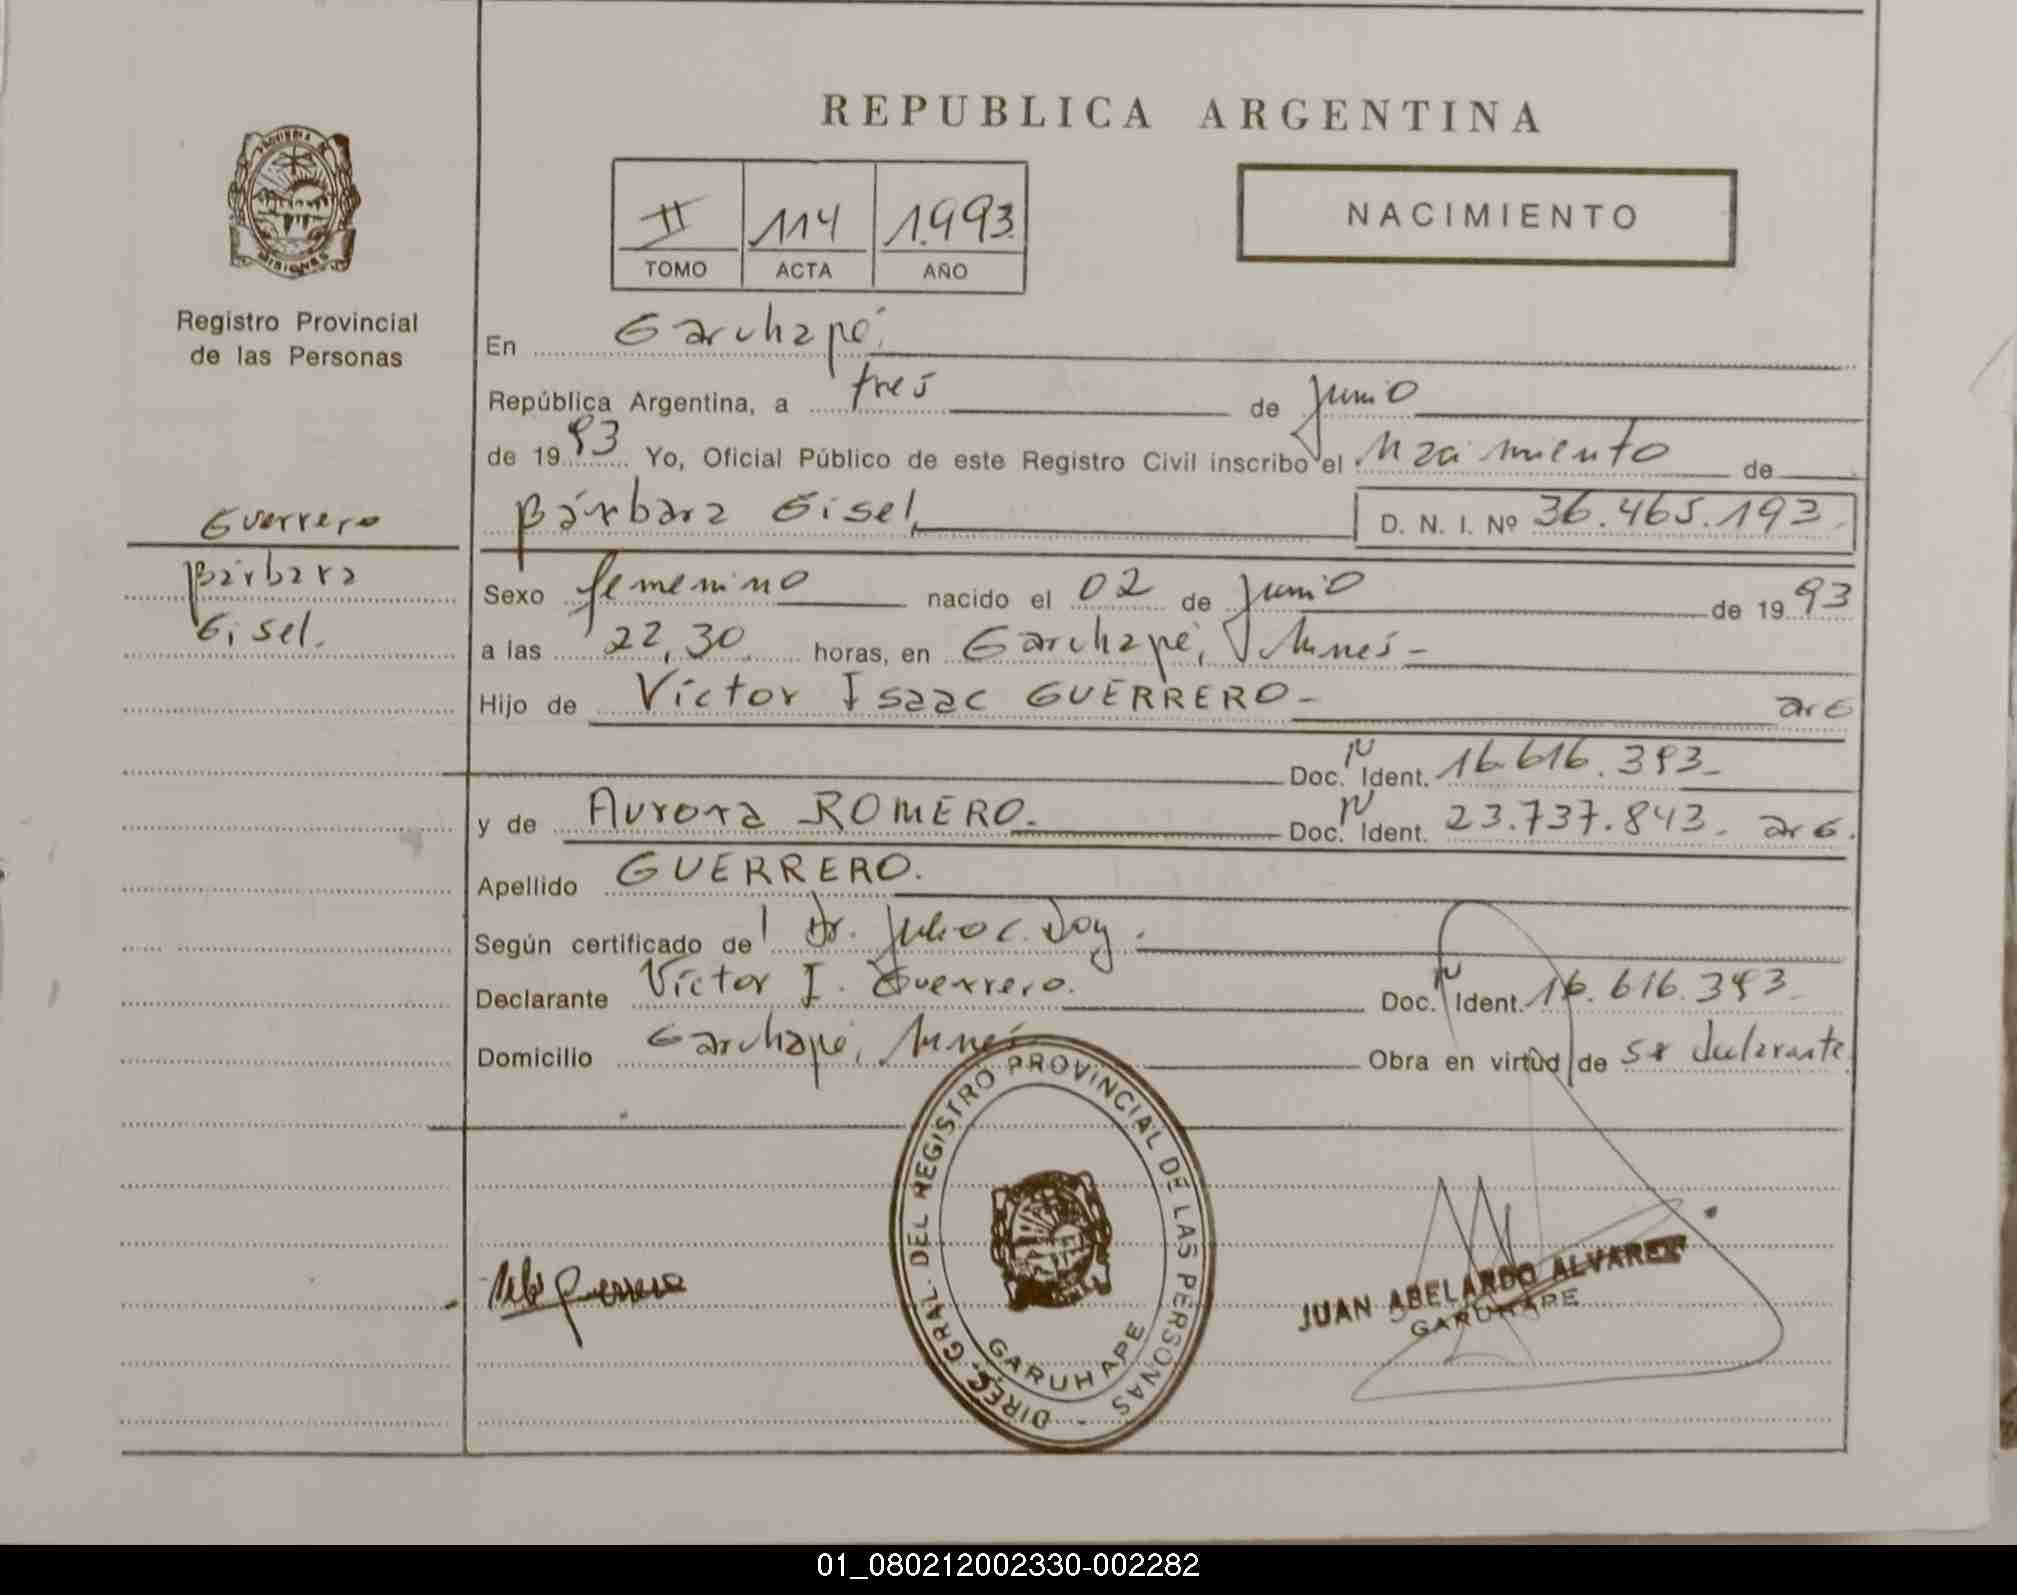 REPUBLICA ARGENTINA
PROVINCIA DE MISIONES
Registro Provincial
de las Personas
II 114 1.993
TOMO ACTA AÑO
NACIMIENTO
En Garuhapé,
República Argentina, a tres de junio
de 1993 Yo, Oficial Público de este Registro Civil inscribo el nacimiento de
Bárbara Gisel, D. N. I. Nº 36.465.193.
Guerrero
Bárbara
Gisel.
Sexo femenino nacido el 02 de junio de 1993
a las 22,30 horas, en Garuhapé, Mnes-
Hijo de Víctor Isaac GUERRERO- arg
Doc. N Ident. 16.616.393-
y de Aurora ROMERO. Doc. N Ident. 23.737.843. arg.
Apellido GUERRERO.
Según certificado de Dr. Julio C. Doy.
Declarante Víctor I. Guerrero. Doc. N Ident. 16.616.393
Domicilio Garuhapé, Mnes Obra en virtud de ser declarante
DIREC. GRAL. DEL REGISTRO PROVINCIAL DE LAS PERSONAS -
GARUHAPE
Guerrero
JUAN ABELARDO ALVAREZ
GARUHAPE
01_080212002330-002282